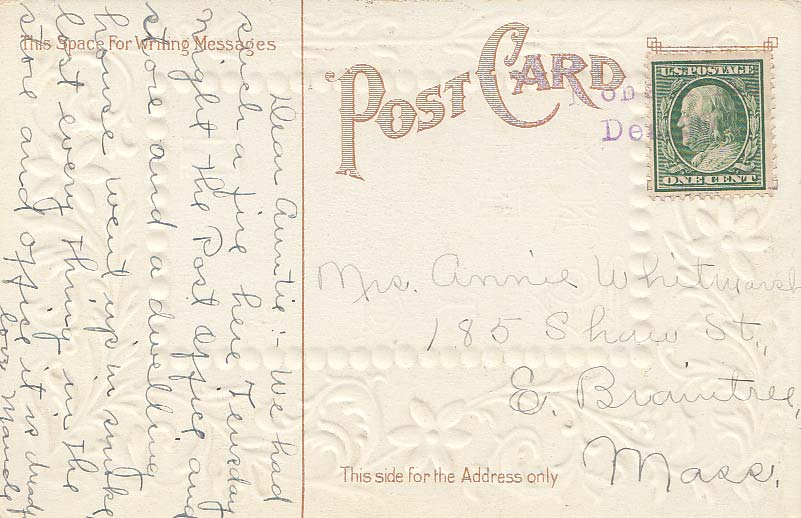 This Space For Writing Messages
POST CARD
U.S. POSTAGE
ONE CENT
Dear Auntie:- We had
such a fire here Teusday
night the Post Office and
store and a dwelling
house went up in smoke
lost every thing in the
store and office it is
love Maude
Mrs. Annie Whitmarsh
185 Shaw St.,
E. Braintree,
Mass.
This side for the Address only